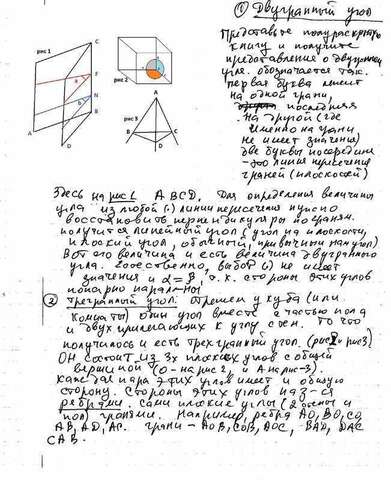 ① Двугранный угол
Представьте полураскрытую
книгу и получите
представление о двугранном
угле. обозначается так.
первая буква лежит
на одной грани,
последняя
на другой (где
именно на грани
не имеет значения)
две буквы посередине
- это линия пересечения
граней (плоскостей)
рис 1
C
F
E
N
B
A
D
рис 2
O
рис 3
A
B
C
D
Здесь на рис 1 ABCD, Для определения величины
угла из любой (.) линии пересечения нужно
восстановить перпендикуляры по граням.
получится линейный угол (угол на плоскости,
плоский угол, обычный, привычный нам угол)
Вот его величина и есть величина двугранного
угла. Естественно, выбор (.) не имеет
значения и α = β, т.к. стороны этих углов
попарно паралл-ны
② трехгранный угол. отрежем у куба (или
комнаты) один угол вместе с частью пола
и двух прилегающих к углу стен. То что
получилось и есть трехгранный угол. (рис 2 и рис 3)
Он состоит из 3х плоских углов с общей
вершиной (O - на рис 2, и A на рис-3).
каждая пара этих углов имеет и общую
сторону. Стороны этих углов наз-ся
ребрами. сами плоские углы (2 стены и
пол) гранями. Например, ребра AO, BO, CO,
AB, AD, AC. грани - AOB, COB, AOC, BAD, DAC
CAB.